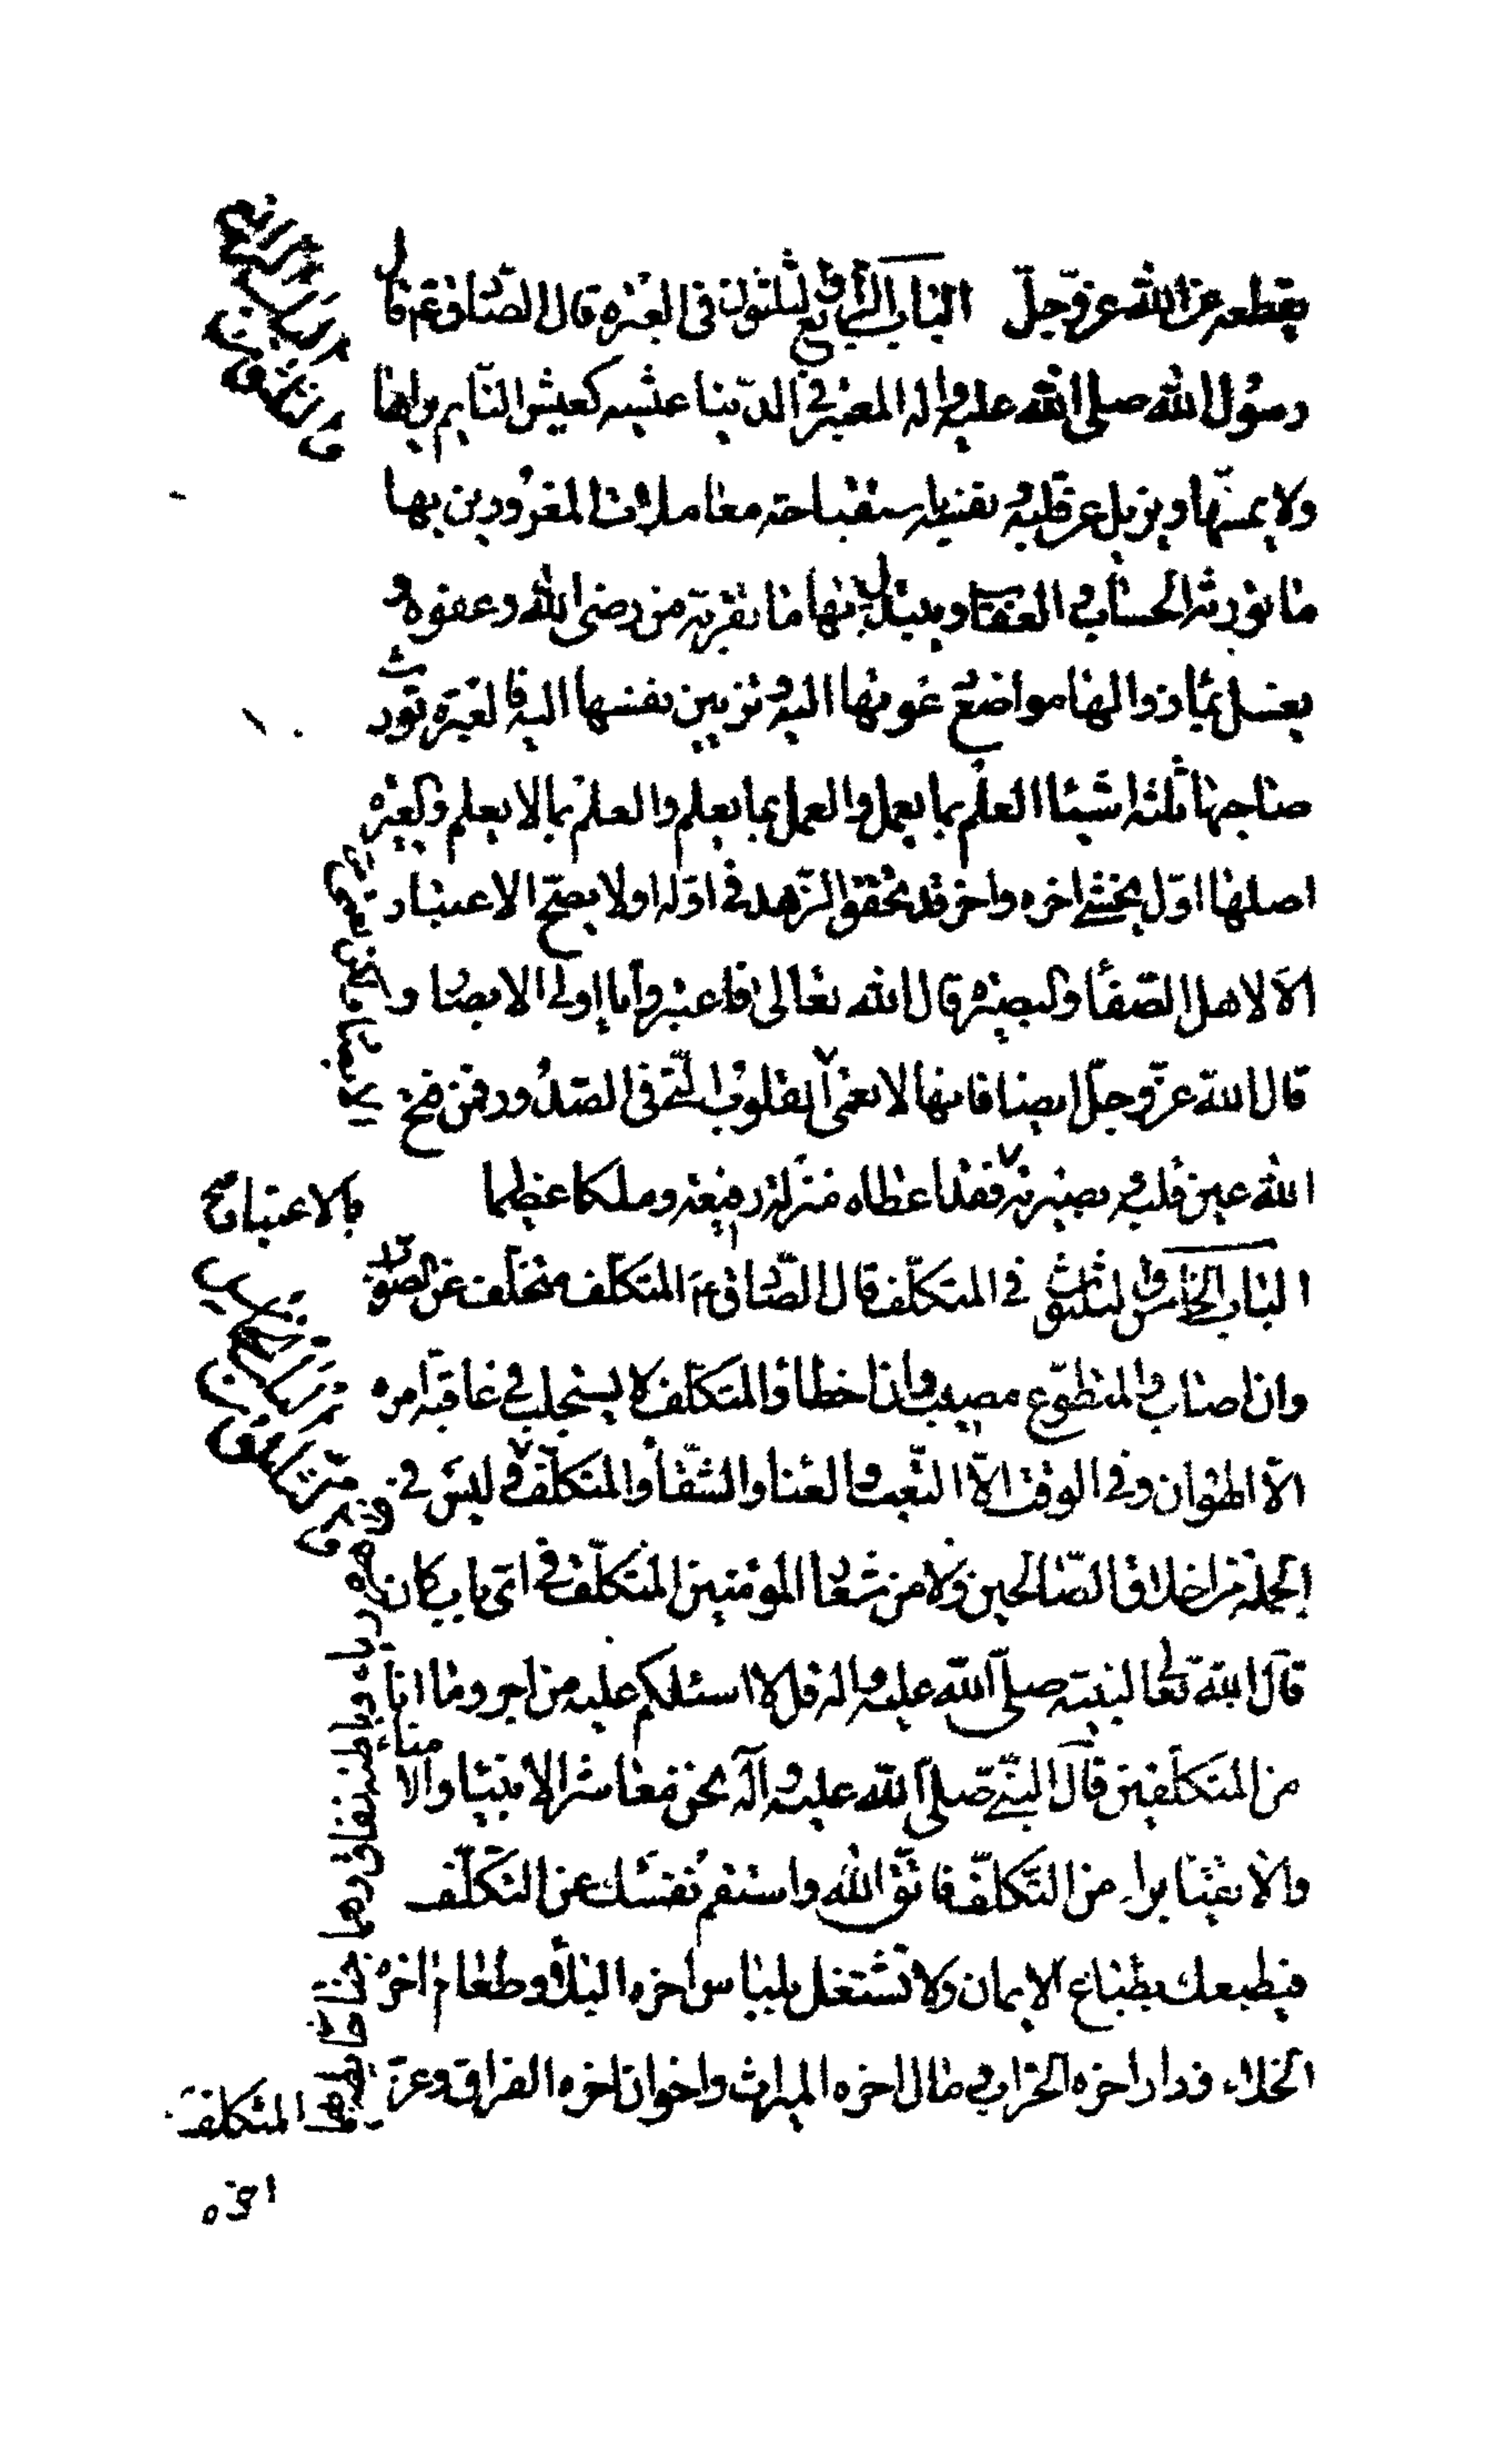 يقطعه عن الله عز وجل الباب الرابع والثلثون فى العبرة قال الصادق عم قال
رسول الله صلى الله عليه واله المعتبر فى الدنيا عيشه كعيش النايم يراها
ولا يمسها ويزيل عن قلبه ونفسه باستقباحه معاملات المغرورين بها
ما يورثه الحساب والعقاب ويبدل بها ما يقربه من رضى الله وعفوه و
يغسل بماء زوالها مواضع دعوتها اليه وتزيين نفسها اليه فالعبرة تورث
صاحبها ثلثة اشياء العلم بما يعمل والعمل بما يعلم والعلم بما لا يعلم والعبرة
اصلها اول يخشى اخره واخر قد تحقق الزهد فى اوله ولا يصح الاعتبار
الا لاهل الصفاء والبصيرة قال الله تعالى فاعتبروا يا اولى الابصار و
قال الله عز وجل ايضا فانها لا تعمى القلوب التى فى الصدور فمن فتح
الله عين قلبه وبصيرته فقد اعطاه منزلة رفيعة وملكا عظيما
بالاعتبار
الباب الخامس والثلثون فى المتكلف قال الصادق عم المتكلف متخلف عن الصواب
وان اصاب والمتطوع مصيب وان اخطأ والمتكلف لا يستجلب فى عاقبة امره
الا الهوان وفى الوقت الا التعب والعناء والشقاء والمتكلف ليس فى
الجملة من اخلاق الصالحين ولا من شعار المؤمنين المتكلف فى اى باب كان
ظاهره رياء وباطنه نفاق وهما جناحان يطير بهما المتكلف
قال الله تعالى لنبيه صلى الله عليه واله قل لا اسئلكم عليه من اجر وما انا
من المتكلفين قال النبى صلى الله عليه وآله نحن معاشر الانبياء والامناء
والاتقياء براء من التكلف فاتق الله واستقم نفسك عن التكلف
فيطبعك بطباع الايمان ولا تشتغل بلباس اخره البلاء وطعام اخره
الخلاء ودار اخره الخراب ومال اخره الميراث واخوان اخره الفراق وعز
اخره